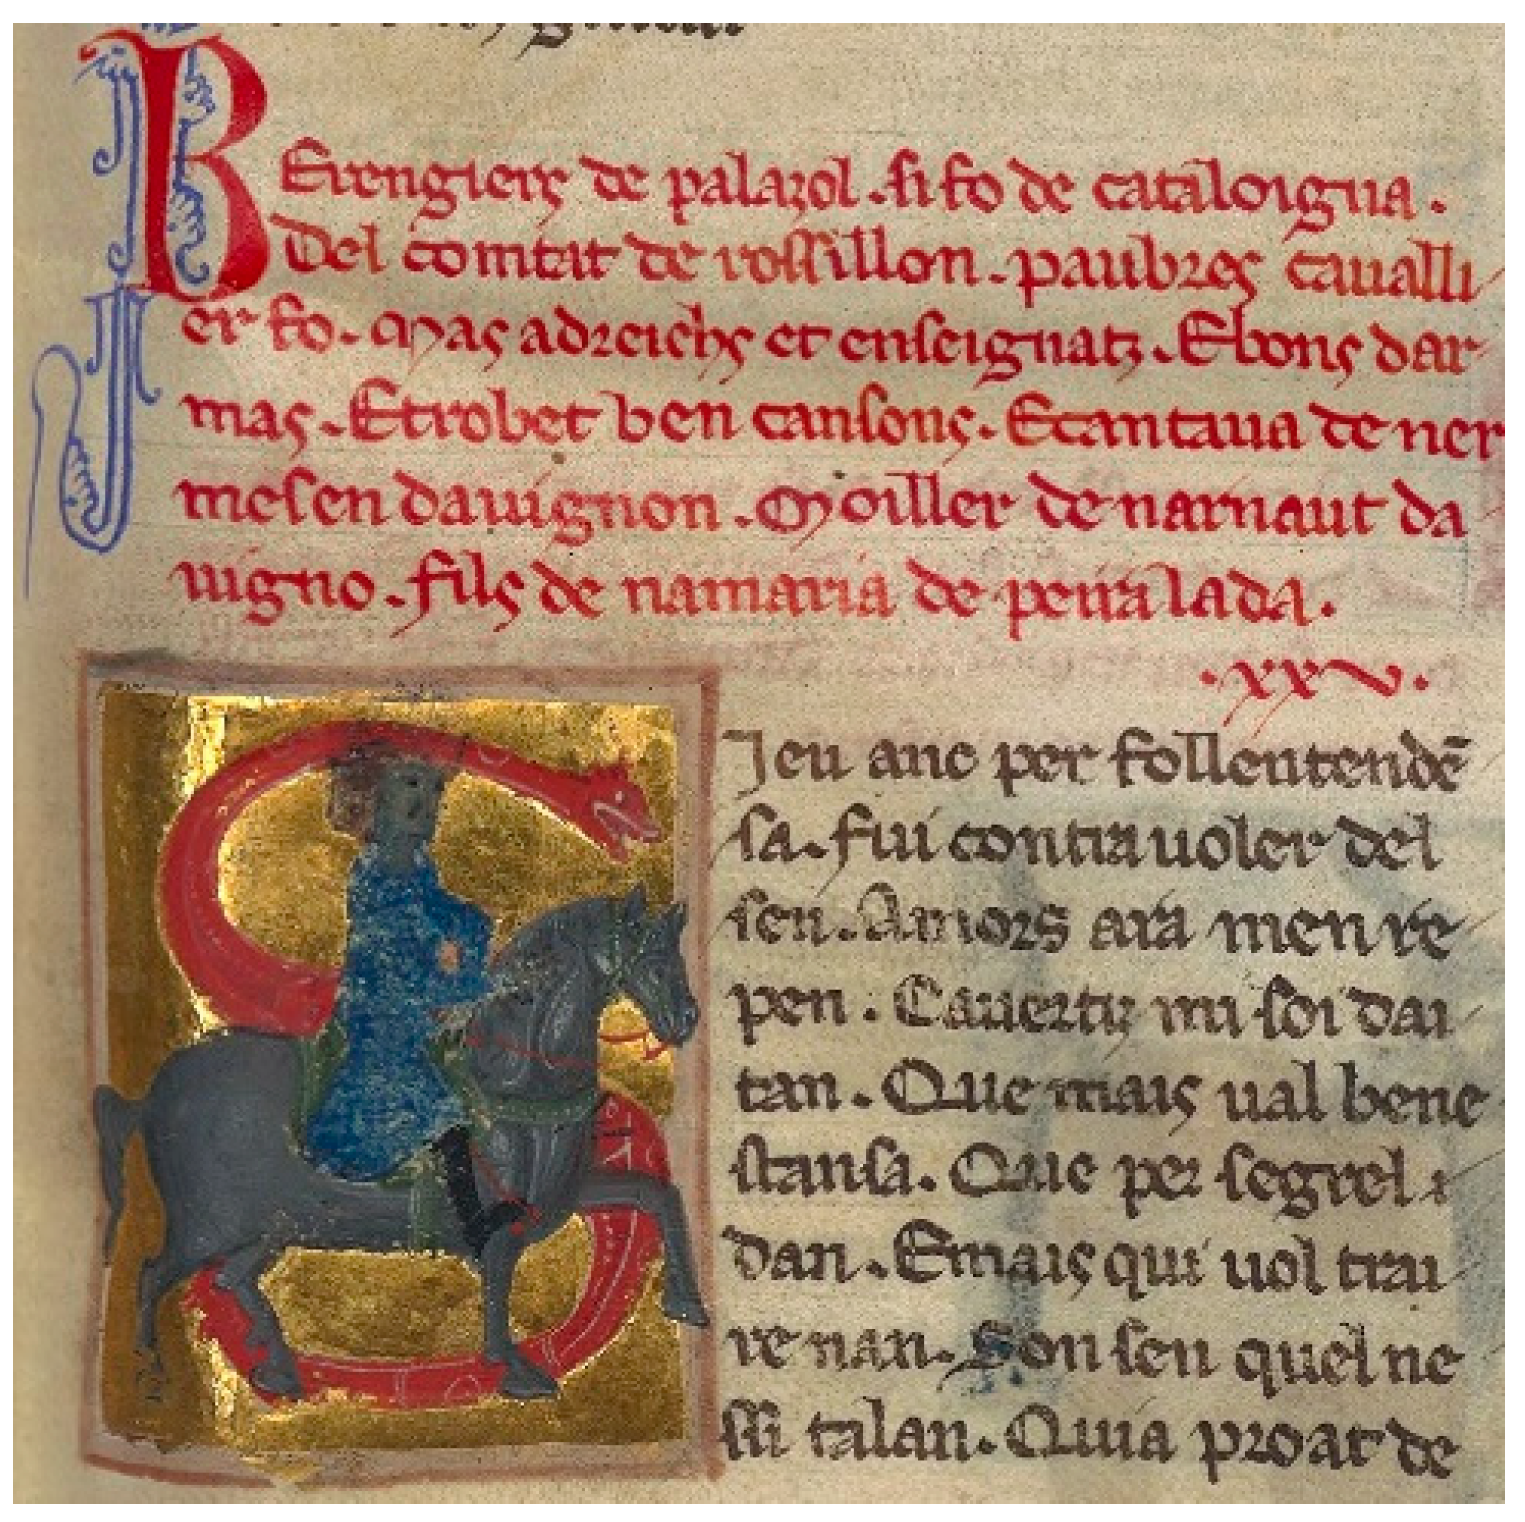 BErengiers de palazol. si fo de cataloigna.
Del comtat de rossillon. paubres cavalli
er fo. Mas adreichs et enseignatz. E bons dar
mas. E trobet ben cansons. E cantaua de ner
mesen dauignon. Moiller de narnaut da
uigno. fils de namaria de peiralada.
.xxv.
SJeu anc per follentendē
sa. fui contra uoler del
sen. Amors ara men re
pen. Cauertz mi soi dai
tan. Que mais ual bene
stansa. Que per segrel
dan. E mais qui uol trau
re nan. Son sen quel ne
ssi talan. Quia proat de